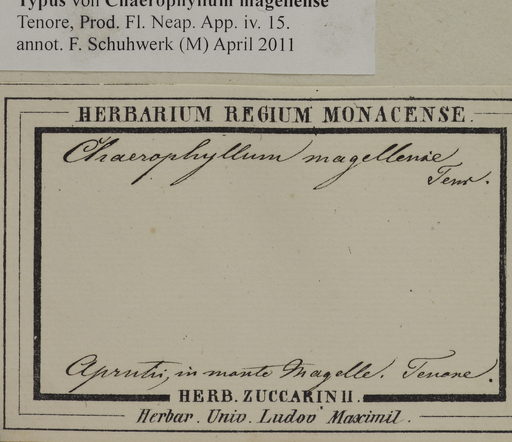 Typus von Chaerophyllum magellense
Tenore, Prod. Fl. Neap. App. iv. 15.
annot. F. Schuhwerk (M) April 2011
HERBARIUM REGIUM MONACENSE.
Chaerophyllum magellense
Tenor.
Aprutii, in monte Magelle. Tenore.
HERB. ZUCCARINII.
Herbar. Univ. Ludov. Maximil.